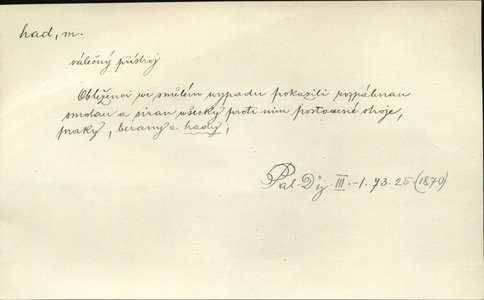 had, m.
válečný přístroj
Obleženci ve smělém výpadu pokazili rozpálenau
smolau a sirau všecky proti nim postavené stroje,
praky, berany a hady,
Pal. Děj. III.-1. 73. 25. (1870)